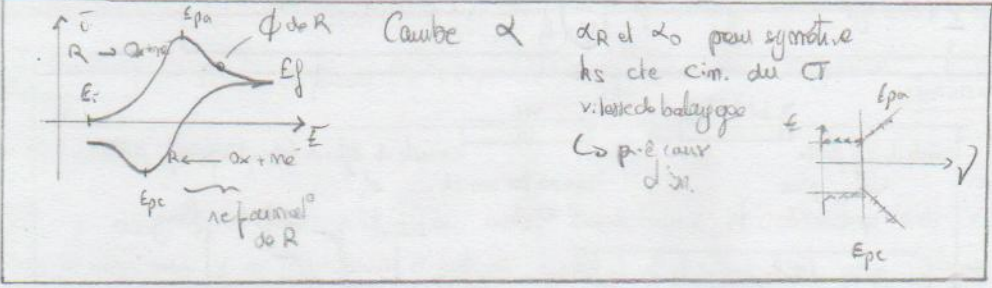 i
Epa
R → Ox+ne
ϕ de R
Ei
Ef
E
R ← Ox + ne⁻
Epc
reformat°
de R
Courbe α
αR et αo pour symétrie
ks cte cin. du CT
vitesse de balayage
E
Epa
Epc